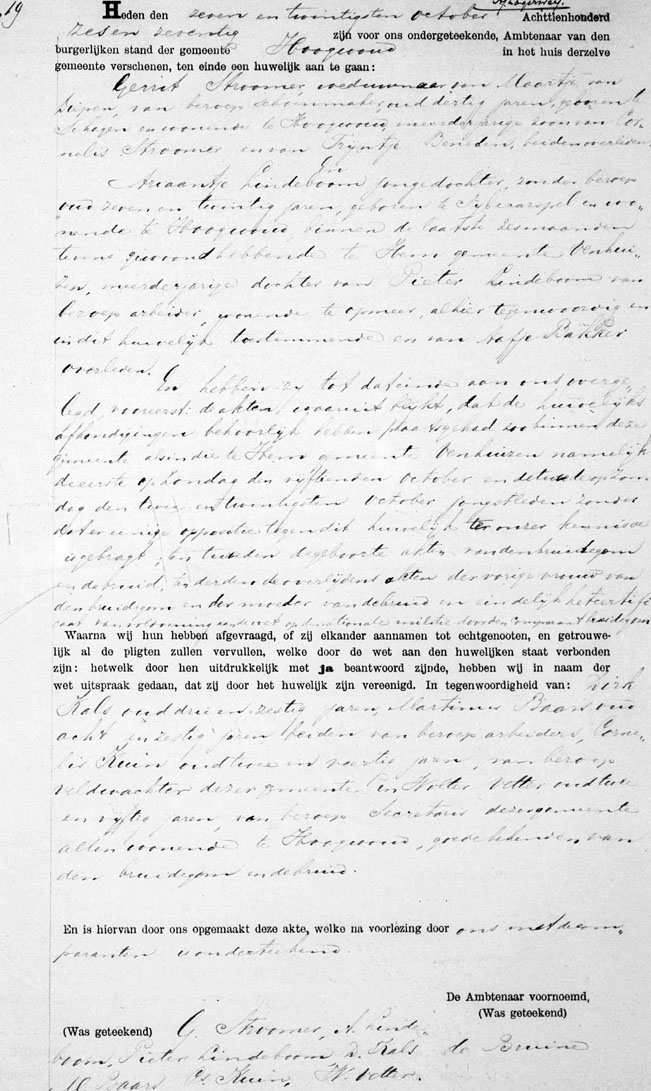 19
Heden den zeven en twintigsten october Achttienhonderd
zes en zeventig zijn voor ons ondergeteekende, Ambtenaar van den
burgerlijken stand der gemeente Hoogwoud in het huis derzelve
gemeente verschenen, ten einde een huwelijk aan te gaan:
Gerrit Stroomer, weduwnaar van Maartje van
Diepen, van beroep schoenmaker oud dertig jaren, geboren te
Schagen en wonende te Hoogwoud, meerderjarige zoon van Cor-
nelis Stroomer en van Trijntje Beneden, beiden overleden.
En
Ariaantje Lindeboom jongedochter, zonder beroep
oud zeven en twintig jaren, geboren te Sijbecarspel en wo-
nende te Hoogwoud, binnen de laatste zes maanden
tevens gewoond hebbende te Hem gemeente Venhui-
zen, meerderjarige dochter van Pieter Lindeboom van
beroep arbeider, wonende te Opmeer, alhier tegenwoordig en
in dit huwelijk toestemmende en van Aafje Bakker
overleden.
En hebben zij tot dat einde aan ons overge-
legd, vooreerst: de akten waaruit blijkt, dat de huwelijks
afkondigingen behoorlijk hebben plaats gehad zoo binnen deze
gemeente als in die te Hem gemeente Venhuizen namelijk
de eerste op Zondag den vijftienden October en de tweede op Zon-
dag den twee en twintigsten October jongstleden zonder
dat er eenige oppositie tegen dit huwelijk ter onzer kennis is
gebragt, ten tweeden de geboorte akten van den bruidegom
en de bruid, ten derden de overlijdens akten der vorige vrouw van
den bruidegom en der moeder van de bruid en eindelijk het certifi-
caat van voldoening aan de wet op de nationale militie door den Comparant bruidegom
Waarna wij hun hebben afgevraagd, of zij elkander aannamen tot echtgenooten, en getrouwe-
lijk al de pligten zullen vervullen, welke door de wet aan den huwelijken staat verbonden
zijn: hetwelk door hen uitdrukkelijk met ja beantwoord zijnde, hebben wij in naam der
wet uitspraak gedaan, dat zij door het huwelijk zijn vereenigd. In tegenwoordigheid van: Dirk
Kals oud drie en zestig jaren, Martinus Baars oud
acht en zestig jaren beiden van beroep arbeiders, Corne-
lis Kuin oud twee en veertig jaren, van beroep
veldwachter dezer gemeente en Wolter Vetter oud twee
en vijftig jaren, van beroep Secretaris dezer gemeente
allen wonende te Hoogwoud, goede bekenden van
den bruidegom en de bruid.
En is hiervan door ons opgemaakt deze akte, welke na voorlezing door ons met de com-
paranten is onderteekend.
De Ambtenaar voornoemd,
(Was geteekend)
(Was geteekend) G. Stroomer, A. Linde-
boom, Pieter Lindeboom D. Kals de Bruine
M. Baars Cs. Kuin, W. Vetter.